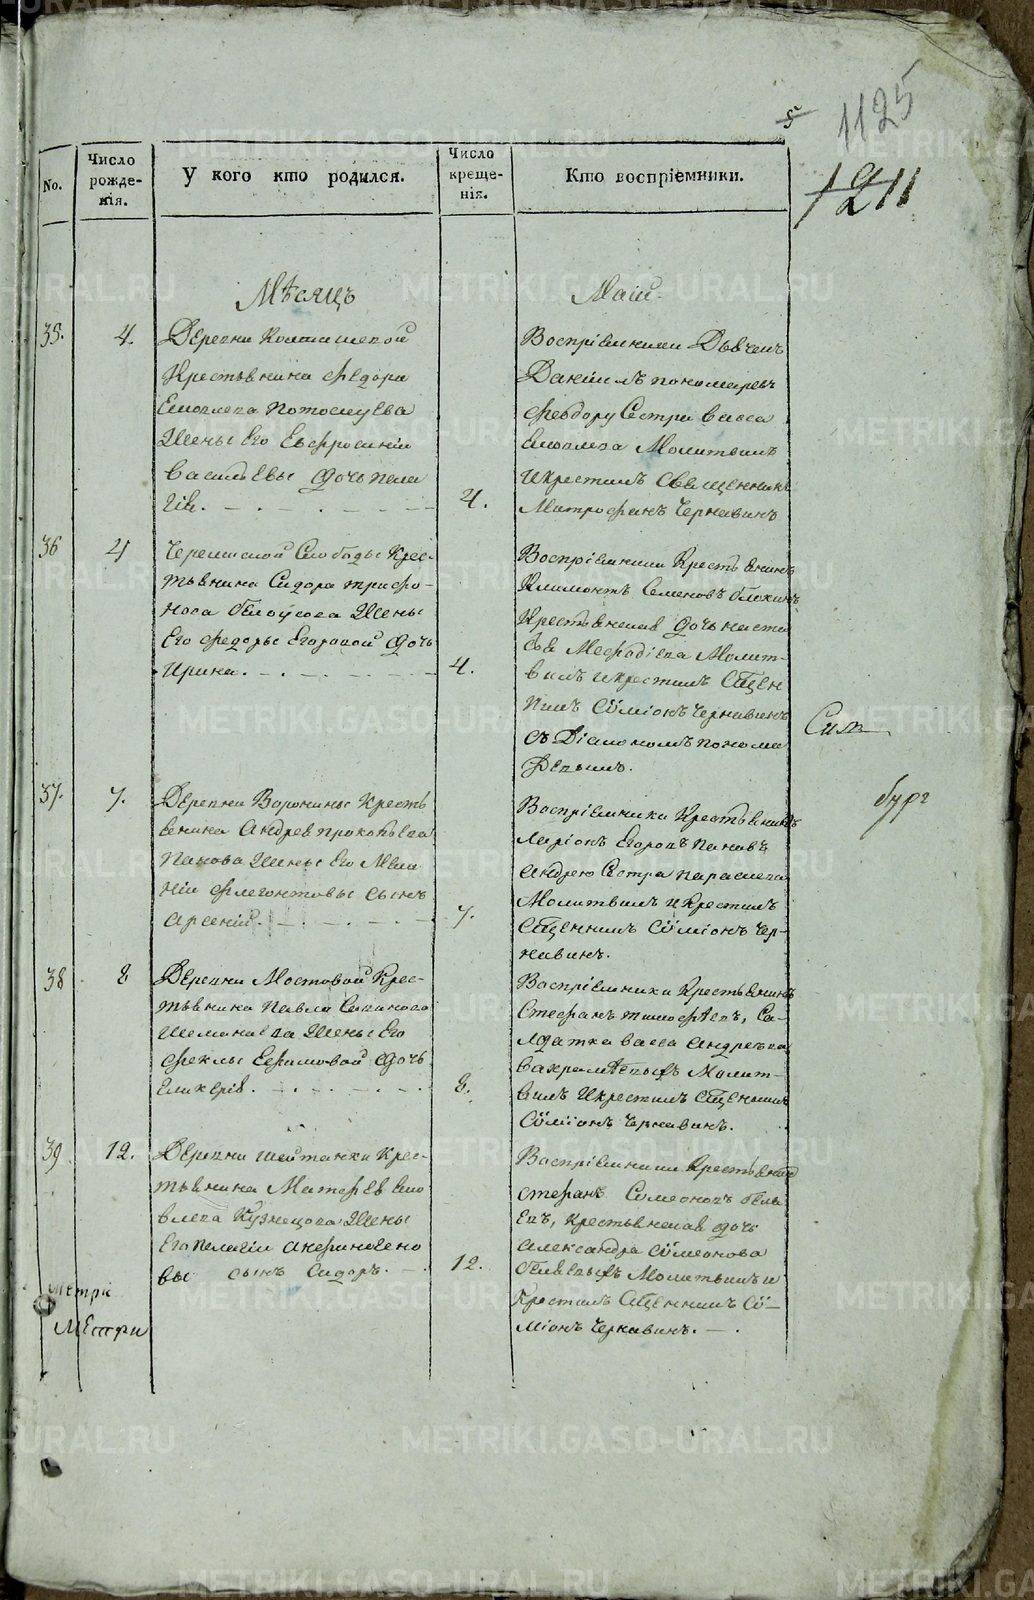 1125
1211
No.
Число рожде-
нія.
У кого кто родился.
Число
креще-
нія.
Кто воспріемники.
Мѣсяцъ Маій.
35. 4. Деревни
Крестьянина Федора
Жены Его Евфросиніи
Васильевы дочь Пела
гія. 4.
Воспріемники
Даніилъ Пономаревъ
Феодору Сестра Васса
Молитвилъ
и крестилъ Священникъ
Митрофанъ Чернавинъ
36 4 Слободы Крес-
тьянина Сидора Трифо-
нова Бѣлоусова Жены
Его Федоры Егоровой дочь
Ирина. 4.
Воспріемники Крестьянинъ
Климонтъ Семеновъ Блохинъ
Крестьянская дочь Наста
сья Мефодіева Молит-
вилъ и крестилъ Сщен
никъ Сѷміонъ Чернавинъ
съ Діакономъ Понома
ревымъ.
Сим
бург
37. 7. Деревни Воронины Кресть
янина Андрея Прокопьева
Панова Жены Его Мела
ніи Флегонтовы сынъ
Арсеній. 7.
Воспріемники Крестьянинъ
Ларіонъ Егоровъ Пановъ
Андрею Сестра Парасковья
Молитвилъ и Крестилъ
Сщенникъ Сѷміонъ Чер-
навинъ.
38 8 Деревни Мостовой Крес-
тьянина Павла
Жены Его
Феклы Ефимовой дочь
Гликерія. 8.
Воспріемники Крестьянинъ
Стефанъ Тимофѣевъ, Са-
лдатка Васса Андреева
Вахрамѣевыхъ Молит-
вилъ и крестилъ Сщенникъ
Сѷміонъ Чернавинъ.
39 12. Деревни Шайтанки Крес-
тьянина Матфея Яко
влева Кузнецова Жены
Его Пелагіи Анфиногено
вы сынъ Сидоръ. 12.
Воспріемники Крестьянинъ
Стефанъ Симеоновъ Бѣля
евъ, Крестьянская дочь
Александра Сѷмеонова
Бѣляевыхъ Молитвилъ и
Крестилъ Сщенникъ Сѷ-
міонъ Чернавинъ.
Метри
Метри
METRIKI.GASO-URAL.RU